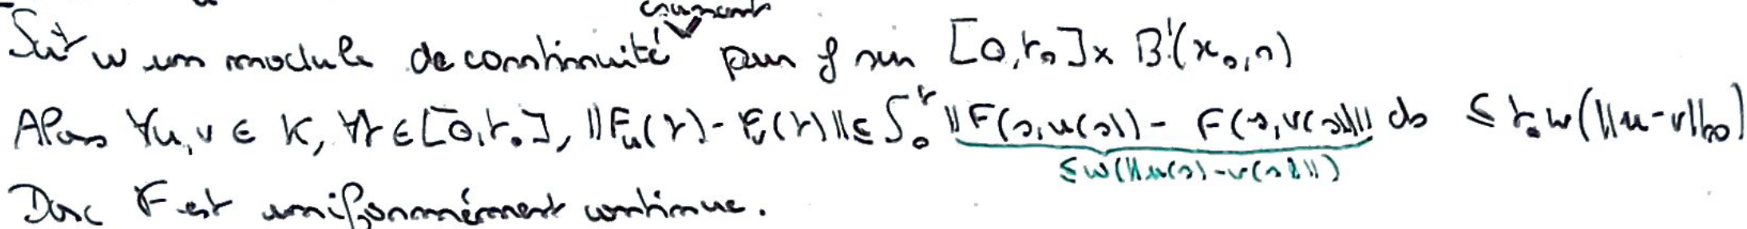 Soit w un module de continuité croissant pour f sur [0,t₀]× B'(x₀,r)
Alors ∀u,v ∈ K, ∀t∈[0,t₀], ||F_u(t)-F_v(t)||≤ ∫₀ᵗ ||F(s,u(s))- F(s,v(s))|| ds ≤ t₀w(||u-v||∞)
≤w(||u(s)-v(s)||)
Donc F est uniformément continue.